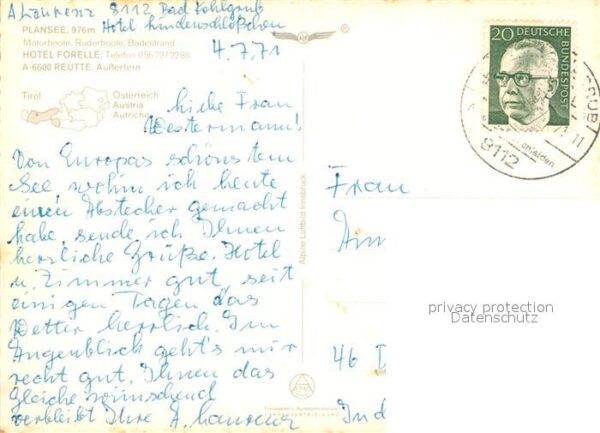 A Laurenz 8112 Bad Kohlgrub
Hotel Lindenschlößchen
4.7.71
PLANSEE, 976m
Motorboote, Ruderboote, Badestrand
HOTEL FORELLE; Telefon 05672/2298
A-6600 REUTTE. Außerfern
Tirol
Österreich
Austria
Autriche
Liebe Frau
Westermann!
Von Europas schönstem
See, wohin ich heute
einen Abstecher gemacht
habe, sende ich Ihnen
herzliche Grüße. Hotel
u. Zimmer gut, seit
einigen Tagen das
Wetter herrlich. Im
Augenblick geht's mir
recht gut. Ihnen das
Gleiche wünschend
verbleibt Ihre A. Laurenz
Alpine Luftbild Innsbruck
20 DEUTSCHE
BUNDESPOST
8112
11
Frau
46
privacy protection
Datenschutz